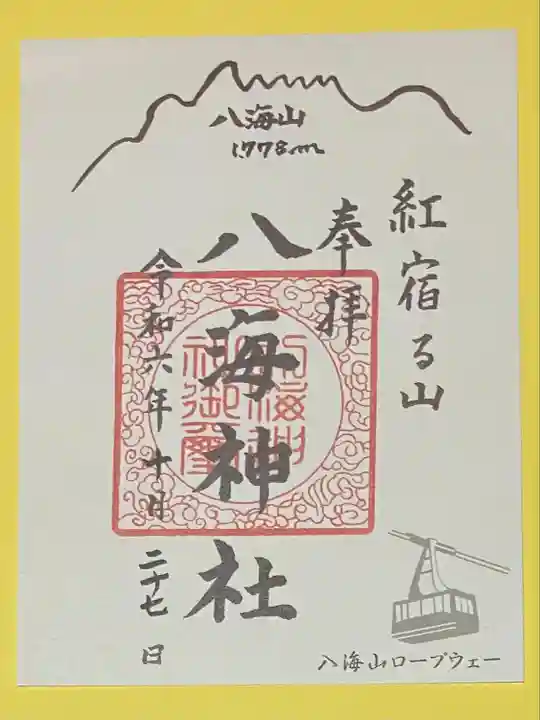 八海山
1.778m
紅宿る山
奉拝
八海神社
令和六年十月二十七日
八海山ロープウェー